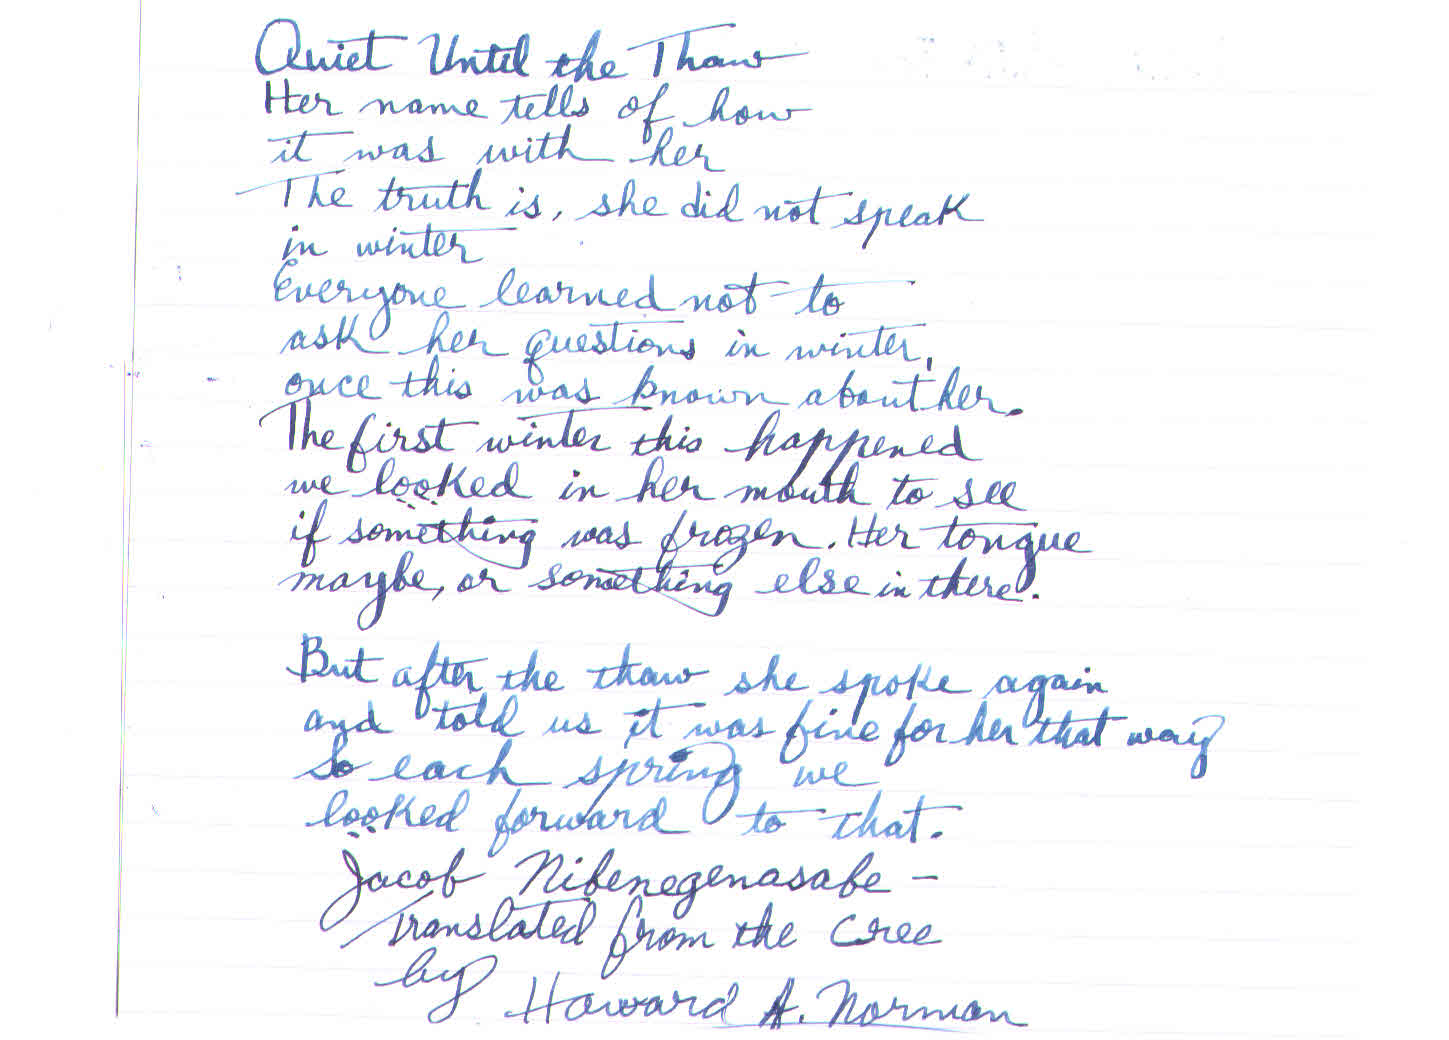 Quiet Until the Thaw
Her name tells of how
it was with her
The truth is, she did not speak
in winter
Everyone learned not to
ask her questions in winter,
once this was known about her.
The first winter this happened
we looked in her mouth to see
if something was frozen. Her tongue
maybe, or something else in there.
But after the thaw she spoke again
and told us it was fine for her that way
So each spring we
looked forward to that.
Jacob Nibenegenasabe -
Translated from the Cree
by Howard A. Norman